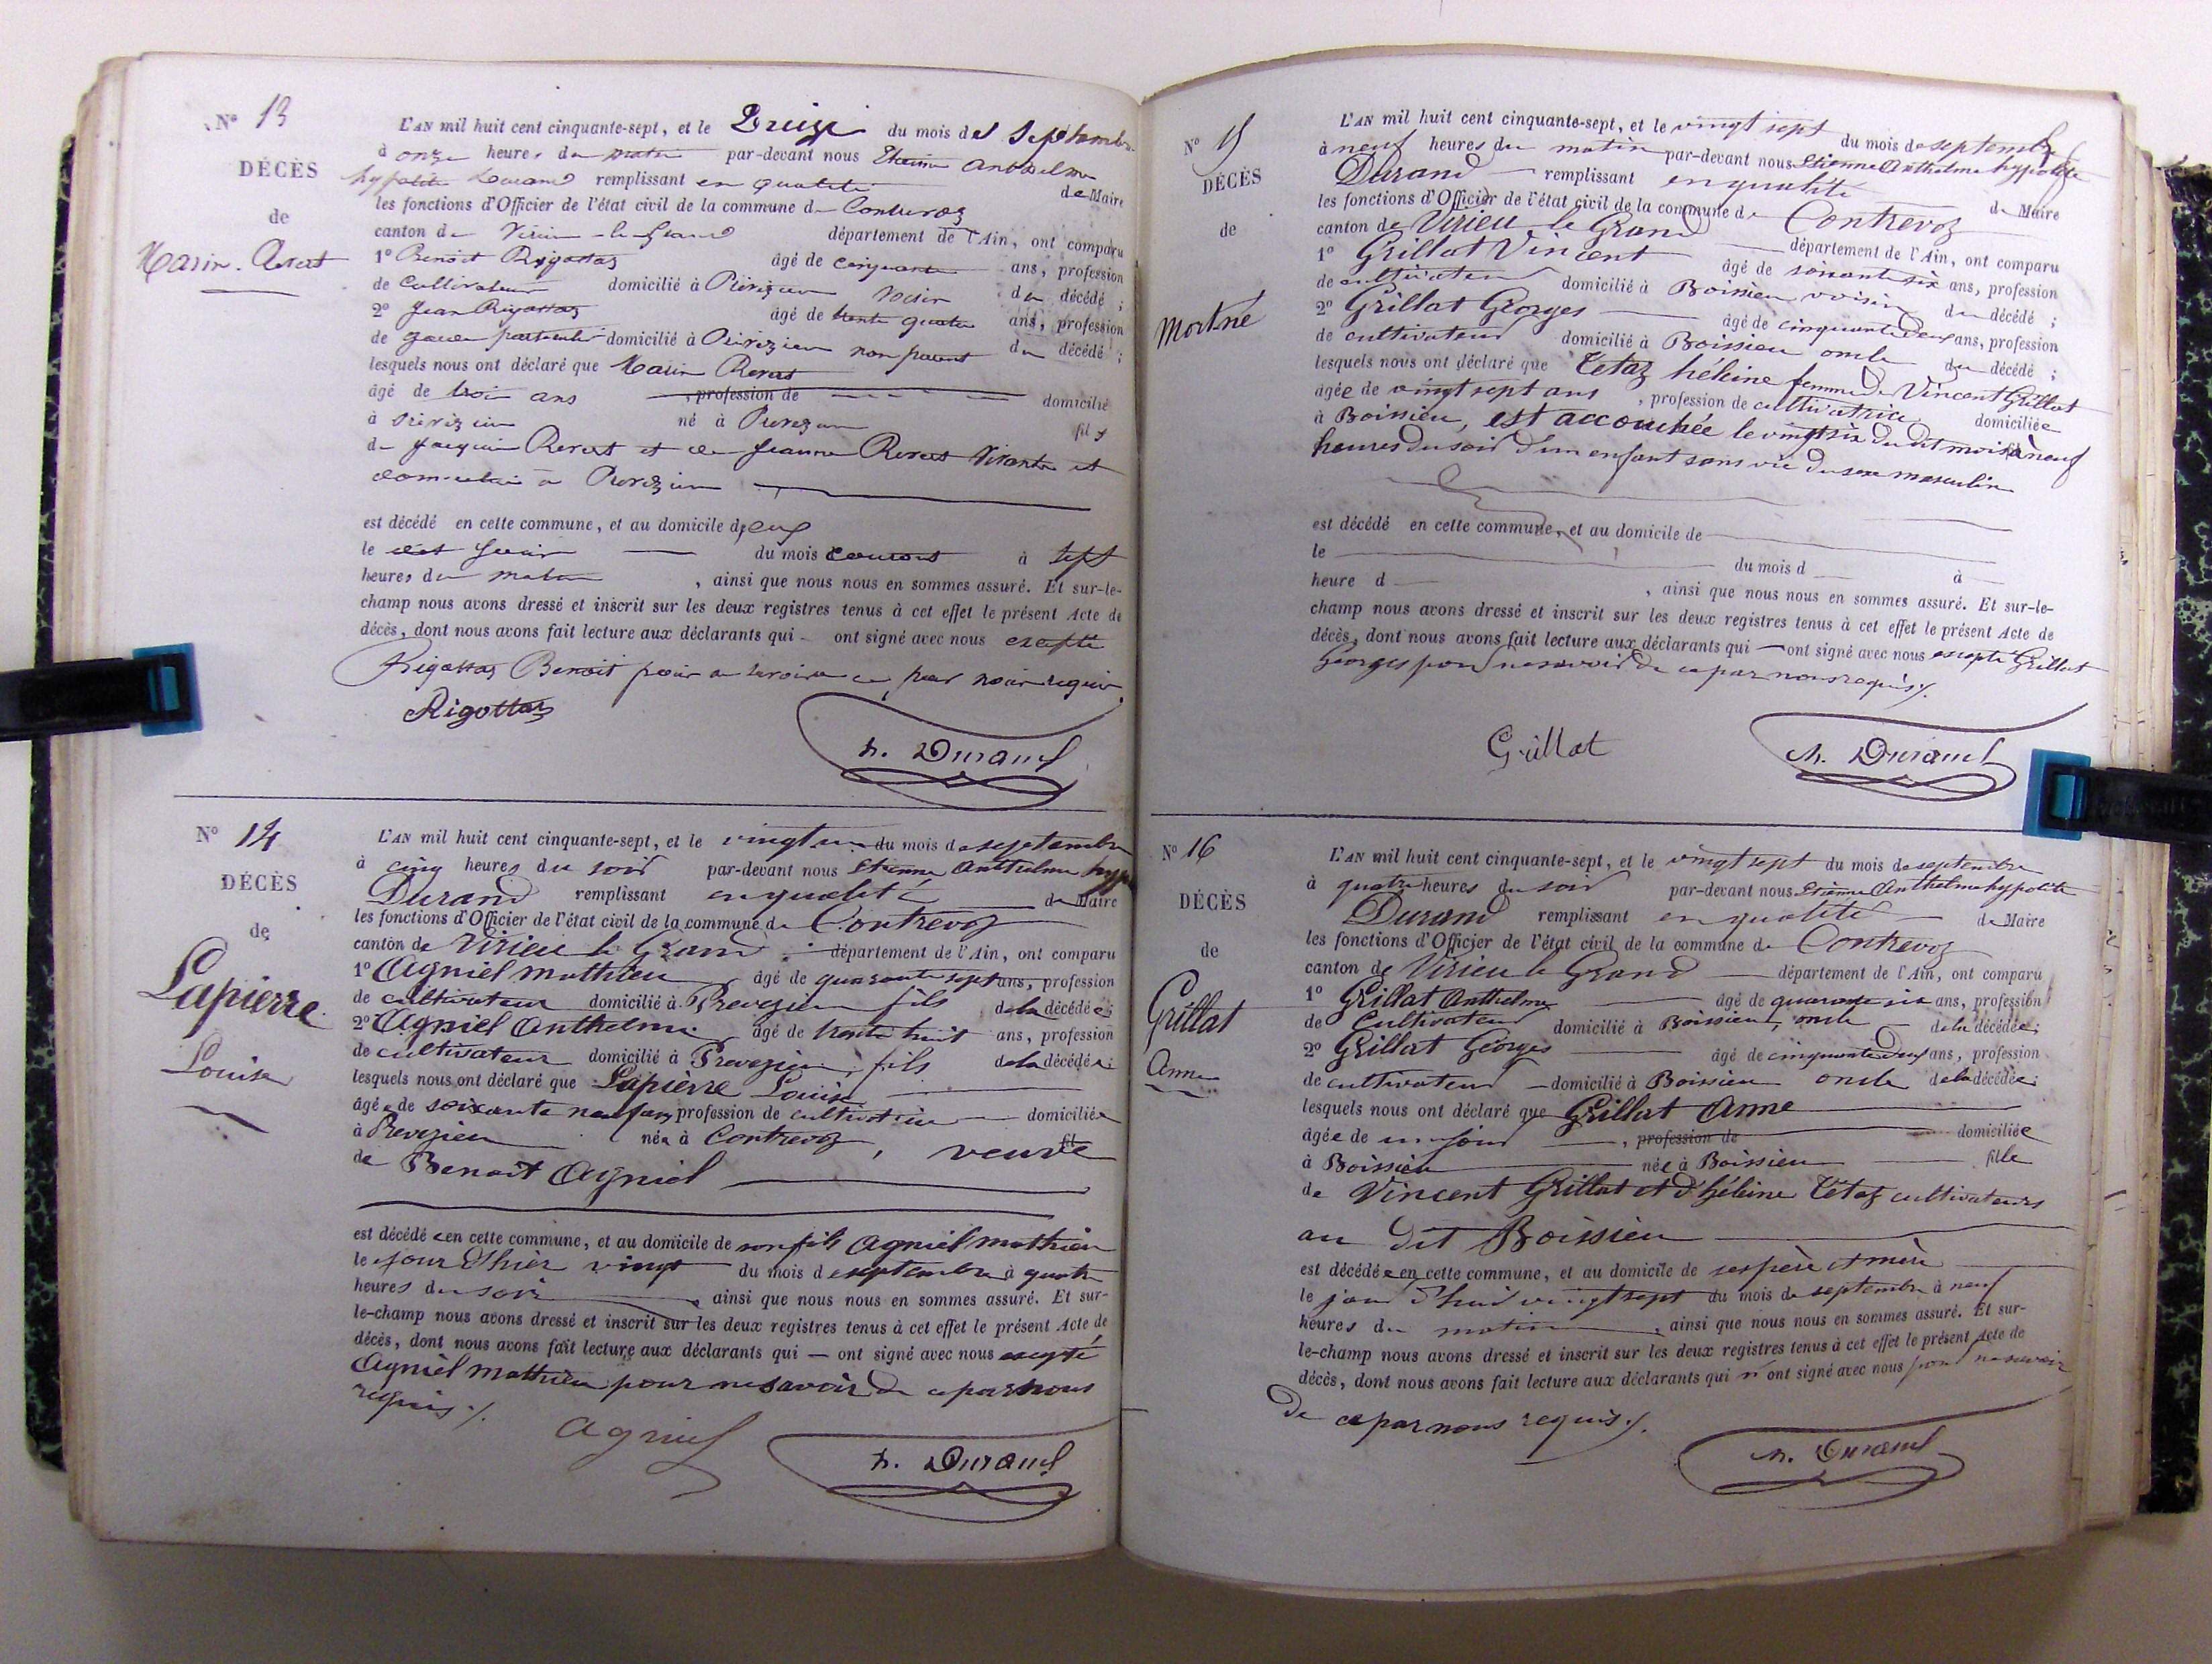 N° 13
DÉCÈS
de
Marin Revat
L'AN mil huit cent cinquante-sept, et le Treize du mois de Septembre
à onze heures du matin par-devant nous Etienne Anthelme
hypolite Durand remplissant en qualité de Maire
les fonctions d'Officier de l'état civil de la commune de Contrevoz
canton de Virieu-le-Grand département de l'Ain, ont comparu
1° Benoit Rigottaz âgé de cinquante ans, profession
de Cultivateur domicilié à voisin du décédé ;
2° Jean Rigottaz âgé de trente quatre ans, profession
de garde particulier domicilié à non parent du décédé ;
lesquels nous ont déclaré que Marin Revat
âgé de trois ans , profession de domicilié
à né à fils
de Jacques Revat et de Jeanne Revat vivants et
à
est décédé en cette commune, et au domicile d'eux
le du mois courant à sept
heures du matin , ainsi que nous nous en sommes assuré. Et sur-le-
champ nous avons dressé et inscrit sur les deux registres tenus à cet effet le présent Acte de
décès, dont nous avons fait lecture aux déclarants qui ont signé avec nous excepté
Rigottaz Benoit pour ne savoir de ce par nous requis
Rigottaz
h. Durand
N° 14
DÉCÈS
de
Lapierre
Louise
L'AN mil huit cent cinquante-sept, et le vingt un du mois de septembre
à cinq heures du soir par-devant nous Etienne Anthelme hyp
Durand remplissant en qualité de Maire
les fonctions d'Officier de l'état civil de la commune de Contrevoz
canton de Virieu le Grand département de l'Ain, ont comparu
1° Agniel Mathieu âgé de quarante sept ans, profession
de cultivateur domicilié à Prevezieu fils de la décédée ;
2° Agniel Anthelme âgé de trente huit ans, profession
de cultivateur domicilié à Prevezieu, fils de la décédée ;
lesquels nous ont déclaré que Lapierre Louise
âgée de soixante neuf ans, profession de cultivatrice domiciliée
à Prevezieu née à Contrevoz, veuve fil
de Benoit Agniel
est décédée en cette commune, et au domicile de son fils Agniel Mathieu
le jour d'hier vingt du mois de septembre à quatre
heures du soir , ainsi que nous nous en sommes assuré. Et sur-
le-champ nous avons dressé et inscrit sur les deux registres tenus à cet effet le présent Acte de
décès, dont nous avons fait lecture aux déclarants qui — ont signé avec nous excepté
Agniel Mathieu pour ne savoir de ce par nous
requis ./.
Agniel
h. Durand
N° 15
DÉCÈS
de
Mort né
L'AN mil huit cent cinquante-sept, et le vingt sept du mois de septembre
à neuf heures du matin par-devant nous Etienne Anthelme hypolite
Durand remplissant en qualité de Maire
les fonctions d'Officier de l'état civil de la commune de Contrevoz
canton de Virieu le Grand département de l'Ain, ont comparu
1° Grillat Vincent âgé de soixante six ans, profession
de cultivateur domicilié à Boissieu voisin du décédé ;
2° Grillat Georges âgé de cinquante deux ans, profession
de cultivateur domicilié à Boissieu oncle du décédé ;
lesquels nous ont déclaré que Tetaz hélène femme de Vincent Grillat
âgée de vingt sept ans , profession de cultivatrice domiciliée
à Boissieu, est accouchée le vingt six du dit mois à neuf
heures du soir d'un enfant sans vie du sexe masculin
est décédé en cette commune, et au domicile de
le du mois d à
heure d , ainsi que nous nous en sommes assuré. Et sur-le-
champ nous avons dressé et inscrit sur les deux registres tenus à cet effet le présent Acte de
décès, dont nous avons fait lecture aux déclarants qui — ont signé avec nous excepté Grillat
Georges pour ne savoir de ce par nous requis ./.
Grillat
h. Durand
N° 16
DÉCÈS
de
Grillat
Anne
L'AN mil huit cent cinquante-sept, et le vingt sept du mois de septembre
à quatre heures du soir par-devant nous Etienne Anthelme hypolite
Durand remplissant en qualité de Maire
les fonctions d'Officier de l'état civil de la commune de Contrevoz
canton de Virieu le Grand département de l'Ain, ont comparu
1° Grillat Anthelme âgé de quarante six ans, profession
de Cultivateur domicilié à Boissieu, oncle de la décédée ;
2° Grillat Georges âgé de cinquante deux ans, profession
de cultivateur domicilié à Boissieu oncle de la décédée ;
lesquels nous ont déclaré que Grillat Anne
âgée de un jour , profession de domiciliée
à Boissieu née à Boissieu fille
de Vincent Grillat et d'hélène Tétaz cultivateurs
au dit Boissieu
est décédée en cette commune, et au domicile de ses père et mère
le jour d'hui vingt sept du mois de septembre à neuf
heures du matin , ainsi que nous nous en sommes assuré. Et sur-
le-champ nous avons dressé et inscrit sur les deux registres tenus à cet effet le présent Acte de
décès, dont nous avons fait lecture aux déclarants qui n'ont signé avec nous pour ne savoir
de ce par nous requis ./.
h. Durand